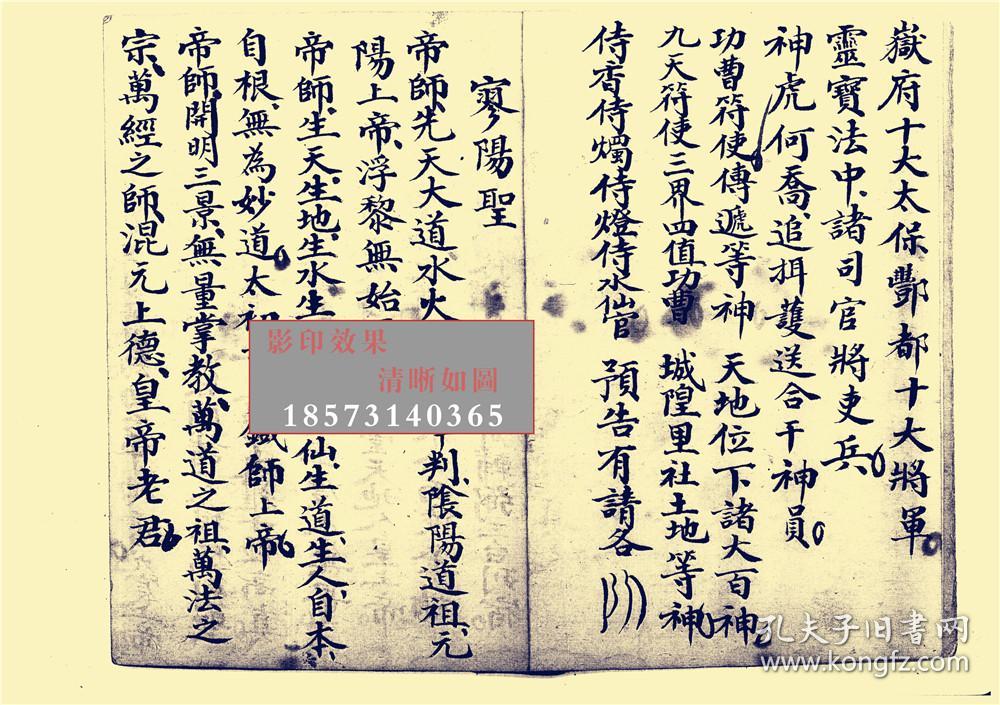 嶽府十大太保酆都十大將軍
靈寶法中諸司官將吏兵
神虎何喬追揖護送合干神員
功曹符使傳遞等神 天地位下諸大百神
九天符使三界四值功曹 城隍里社土地等神
侍香侍燭侍燈侍水仙官 預告有請各
寥陽聖
帝師先天大道水火 判陰陽道祖元
陽上帝浮黎無始
帝師生天生地生水生 仙生道生人自本
自根無為妙道太 師上帝
帝師開明三景無量掌教萬道之祖萬法之
宗萬經之師混元上德皇帝老君
影印效果
清晰如圖
18573140365
孔夫子旧书网
www.kongfz.com